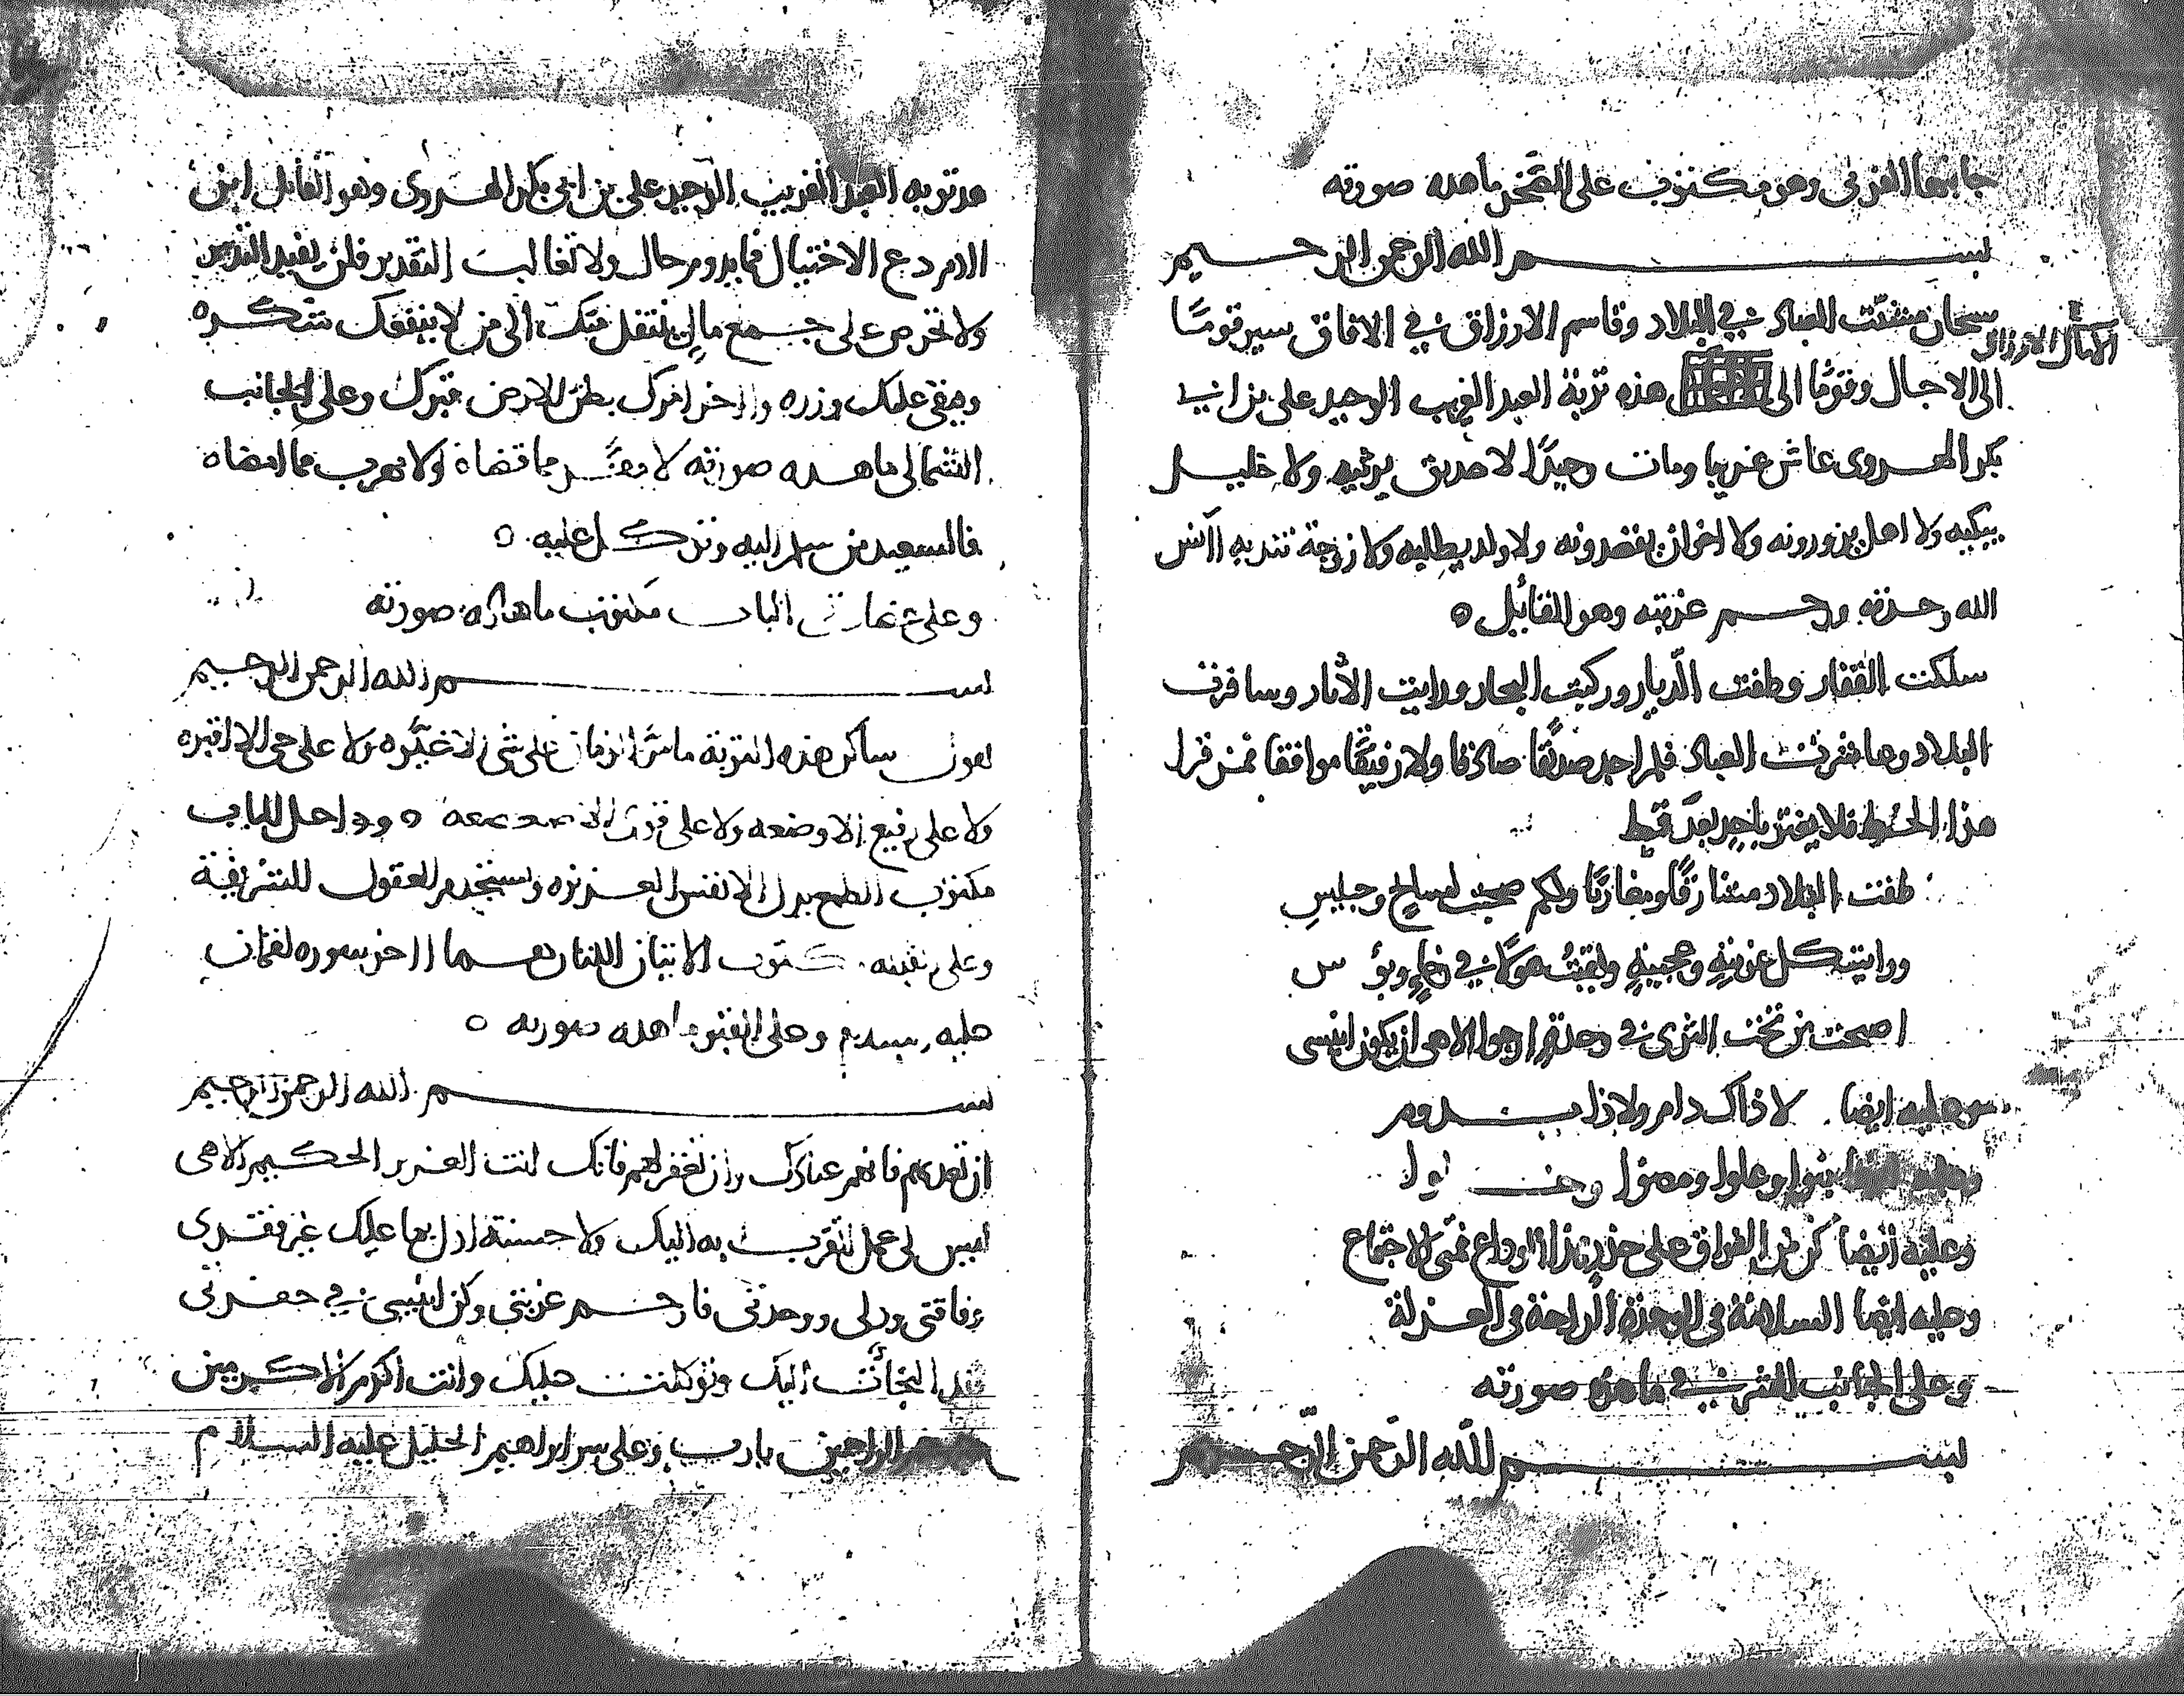 جانبها الغربي وهو مكتوب على الصخر ما هذه صورته
بسم الله الرحمن الرحيم
سبحان مشتت العباد في البلاد وقاسم الارزاق في الافاق سير قوما
الى الاجال وقوما الى هذه تربة العبد الغريب الوحيد على بن ابي
الامال الارزاق
بكر الهروى عاش غريبا ومات وحيدا لا صديق يرثيه ولا خليل
يبكيه ولا اهل يزورونه ولا اخوان يقصدونه ولا ولد يطلبه ولا زوجة تندبه آنس
الله وحدته ورحم غربته وهو القائل
سلكت القفار وطفت الديار وركبت البحار ورايت الاثار وسافرت
البلاد وعاشرت العباد فلم اجد صديقا صادقا ولا رفيقا موافقا فمن قرا
هذا الخط فلا يغتر باحد بعد قط
طفت البلاد مشارقا ومغاربا ولكم صحبت لسايح وجليس
ورايت كل غريبة وعجيبة ولقيت هولا في رخاء وبوس
اصبحت من تحت الثرى في وحدة ارجو الاهى ان يكون انيسى
وعليه ايضا لا ذاك دام ولا ذا يدوم
بنوا وعلوا ومضوا
وعليه ايضا كن من الفراق على حذر الوداع الاجتماع
وعليه ايضا السلامة في الوحدة الراحة في العزلة
وعلى الجانب الشرقي ما هذه صورته
بسم الله الرحمن الرحيم
هذه تربه العبد الغريب الوحيد على بن ابي بكر الهروى وهو القائل ابن
ادم دع الاحتيال فما يدوم حال ولا تغالب التقدير فلن يفيد التدبير
ولا تحرص على جمع مال ينتقل منك الى من لا ينفعك شكره
ويبقى عليك وزره واخر امرك بطن الارض قبرك وعلى الجانب
الشمالى ما هذه صورته لا مفر مما قضاه ولا مهرب مما امضاه
فالسعيد من سلم اليه وتوكل عليه
وعلى الباب مكتوب ما هذه صورته
بسم الله الرحمن الرحيم
يقول ساكن هذه التربة ما مر الزمان على شى الا غيره ولا على حى الا اقبره
ولا على رفيع الا وضعه ولا على قوى الا وداخل الباب
مكتوب الطمع يذل الانفس العزيزه ويستخدم العقول الشريفة
وعلى مكتوب الابيات اللتان هما اخر سوره لقمان
عليه وعلى القبر ما هذه صورته
بسم الله الرحمن الرحيم
ان تعذبهم فانهم عبادك وان تغفر لهم فانك انت العزيز الحكيم الاهى
ليس لى عمل اتقرب به اليك ولا حسنة ادل بها عليك غير فقرى
وفاقتى وذلى ووحدتى فارحم غربتى وكن انيسى في حفرتى
فقد التجات اليك وتوكلت عليك وانت اكرم الاكرمين
الراحمين يا رب وعلى سر ابراهيم الخليل عليه السلام